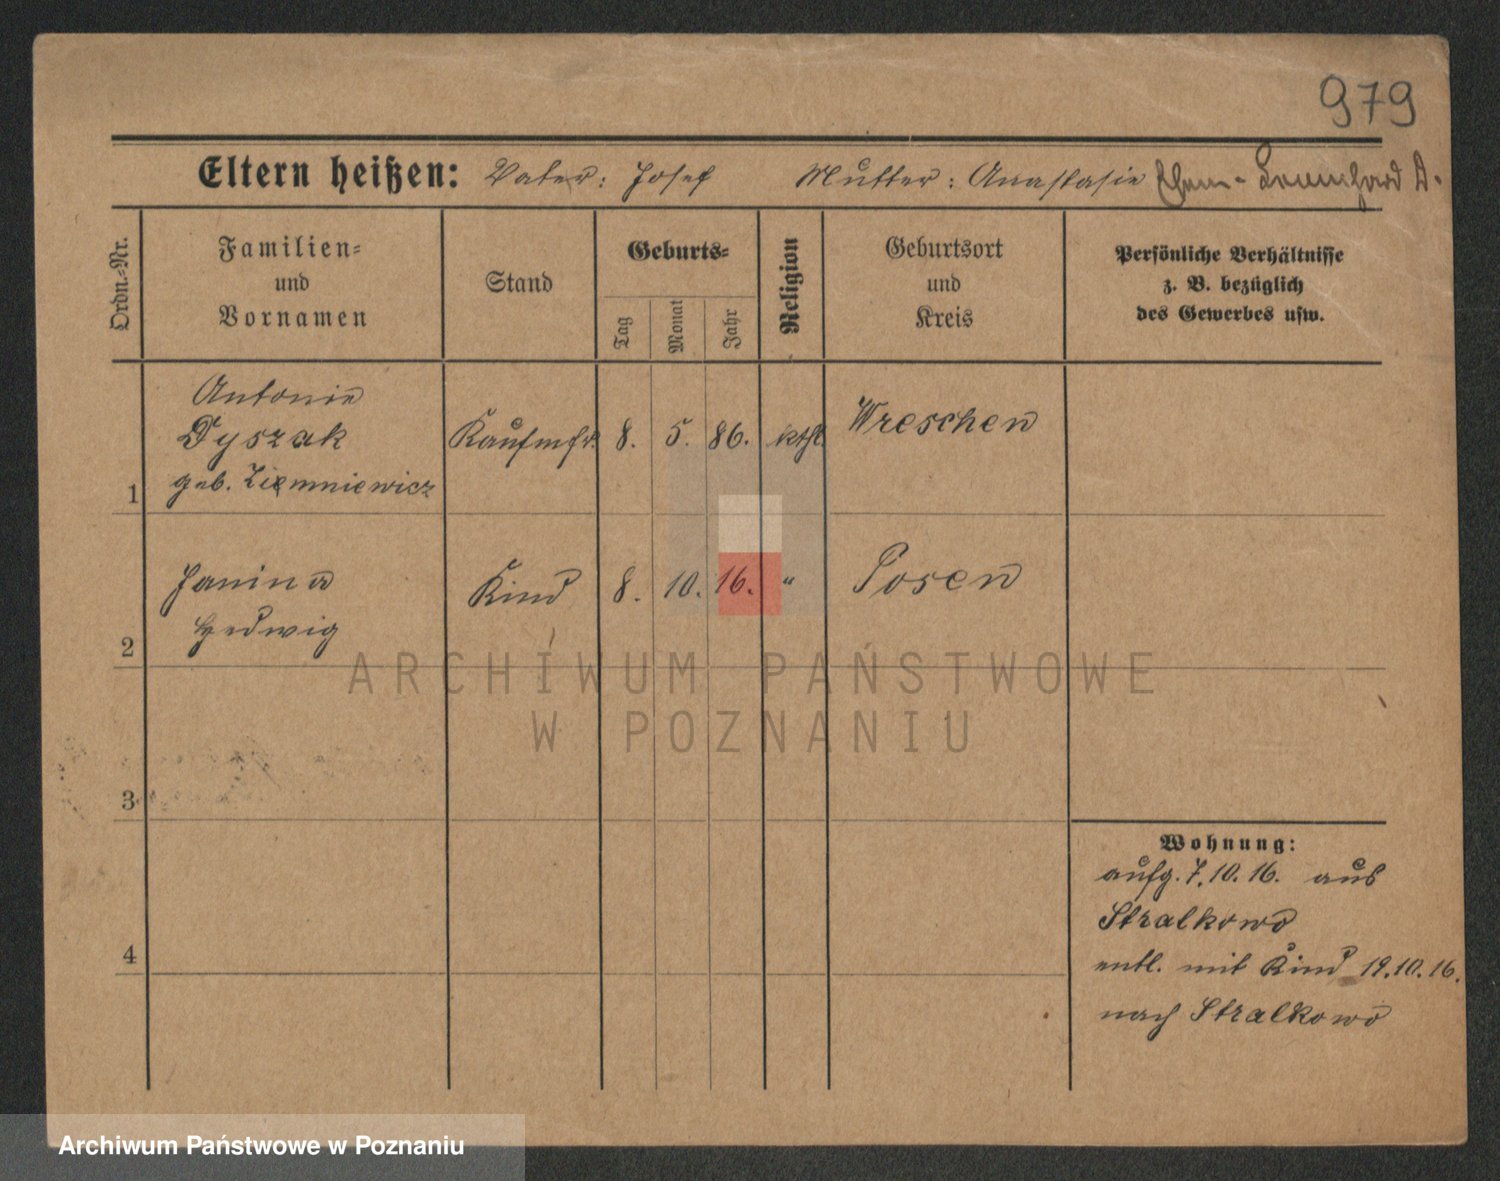 979
Eltern heißen: Vater: Josef Mutter: Anastasie
Ordn.-Nr.
Familien-
und
Vornamen
Stand
Geburts-
Tag
Monat
Jahr
Religion
Geburtsort
und
Kreis
Persönliche Verhältnisse
z. B. bezüglich
des Gewerbes usw.
Antonie
Dyszak
geb. Ziemniewicz
1
Kaufmfr. 8. 5. 86. kthl. Wreschen
Janina
Hedwig
2
Kind 8. 10. 16. " Posen
3
4
Wohnung:
aufg. 7.10.16. aus
Stralkowo
entl. mit Kind 19.10.16.
nach Stralkowo
ARCHIWUM PAŃSTWOWE
W POZNANIU
Archiwum Państwowe w Poznaniu